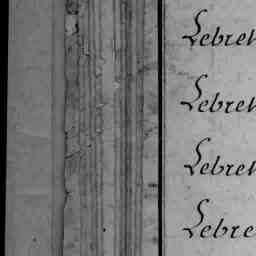 Lebret
Lebret
Lebret
Lebre